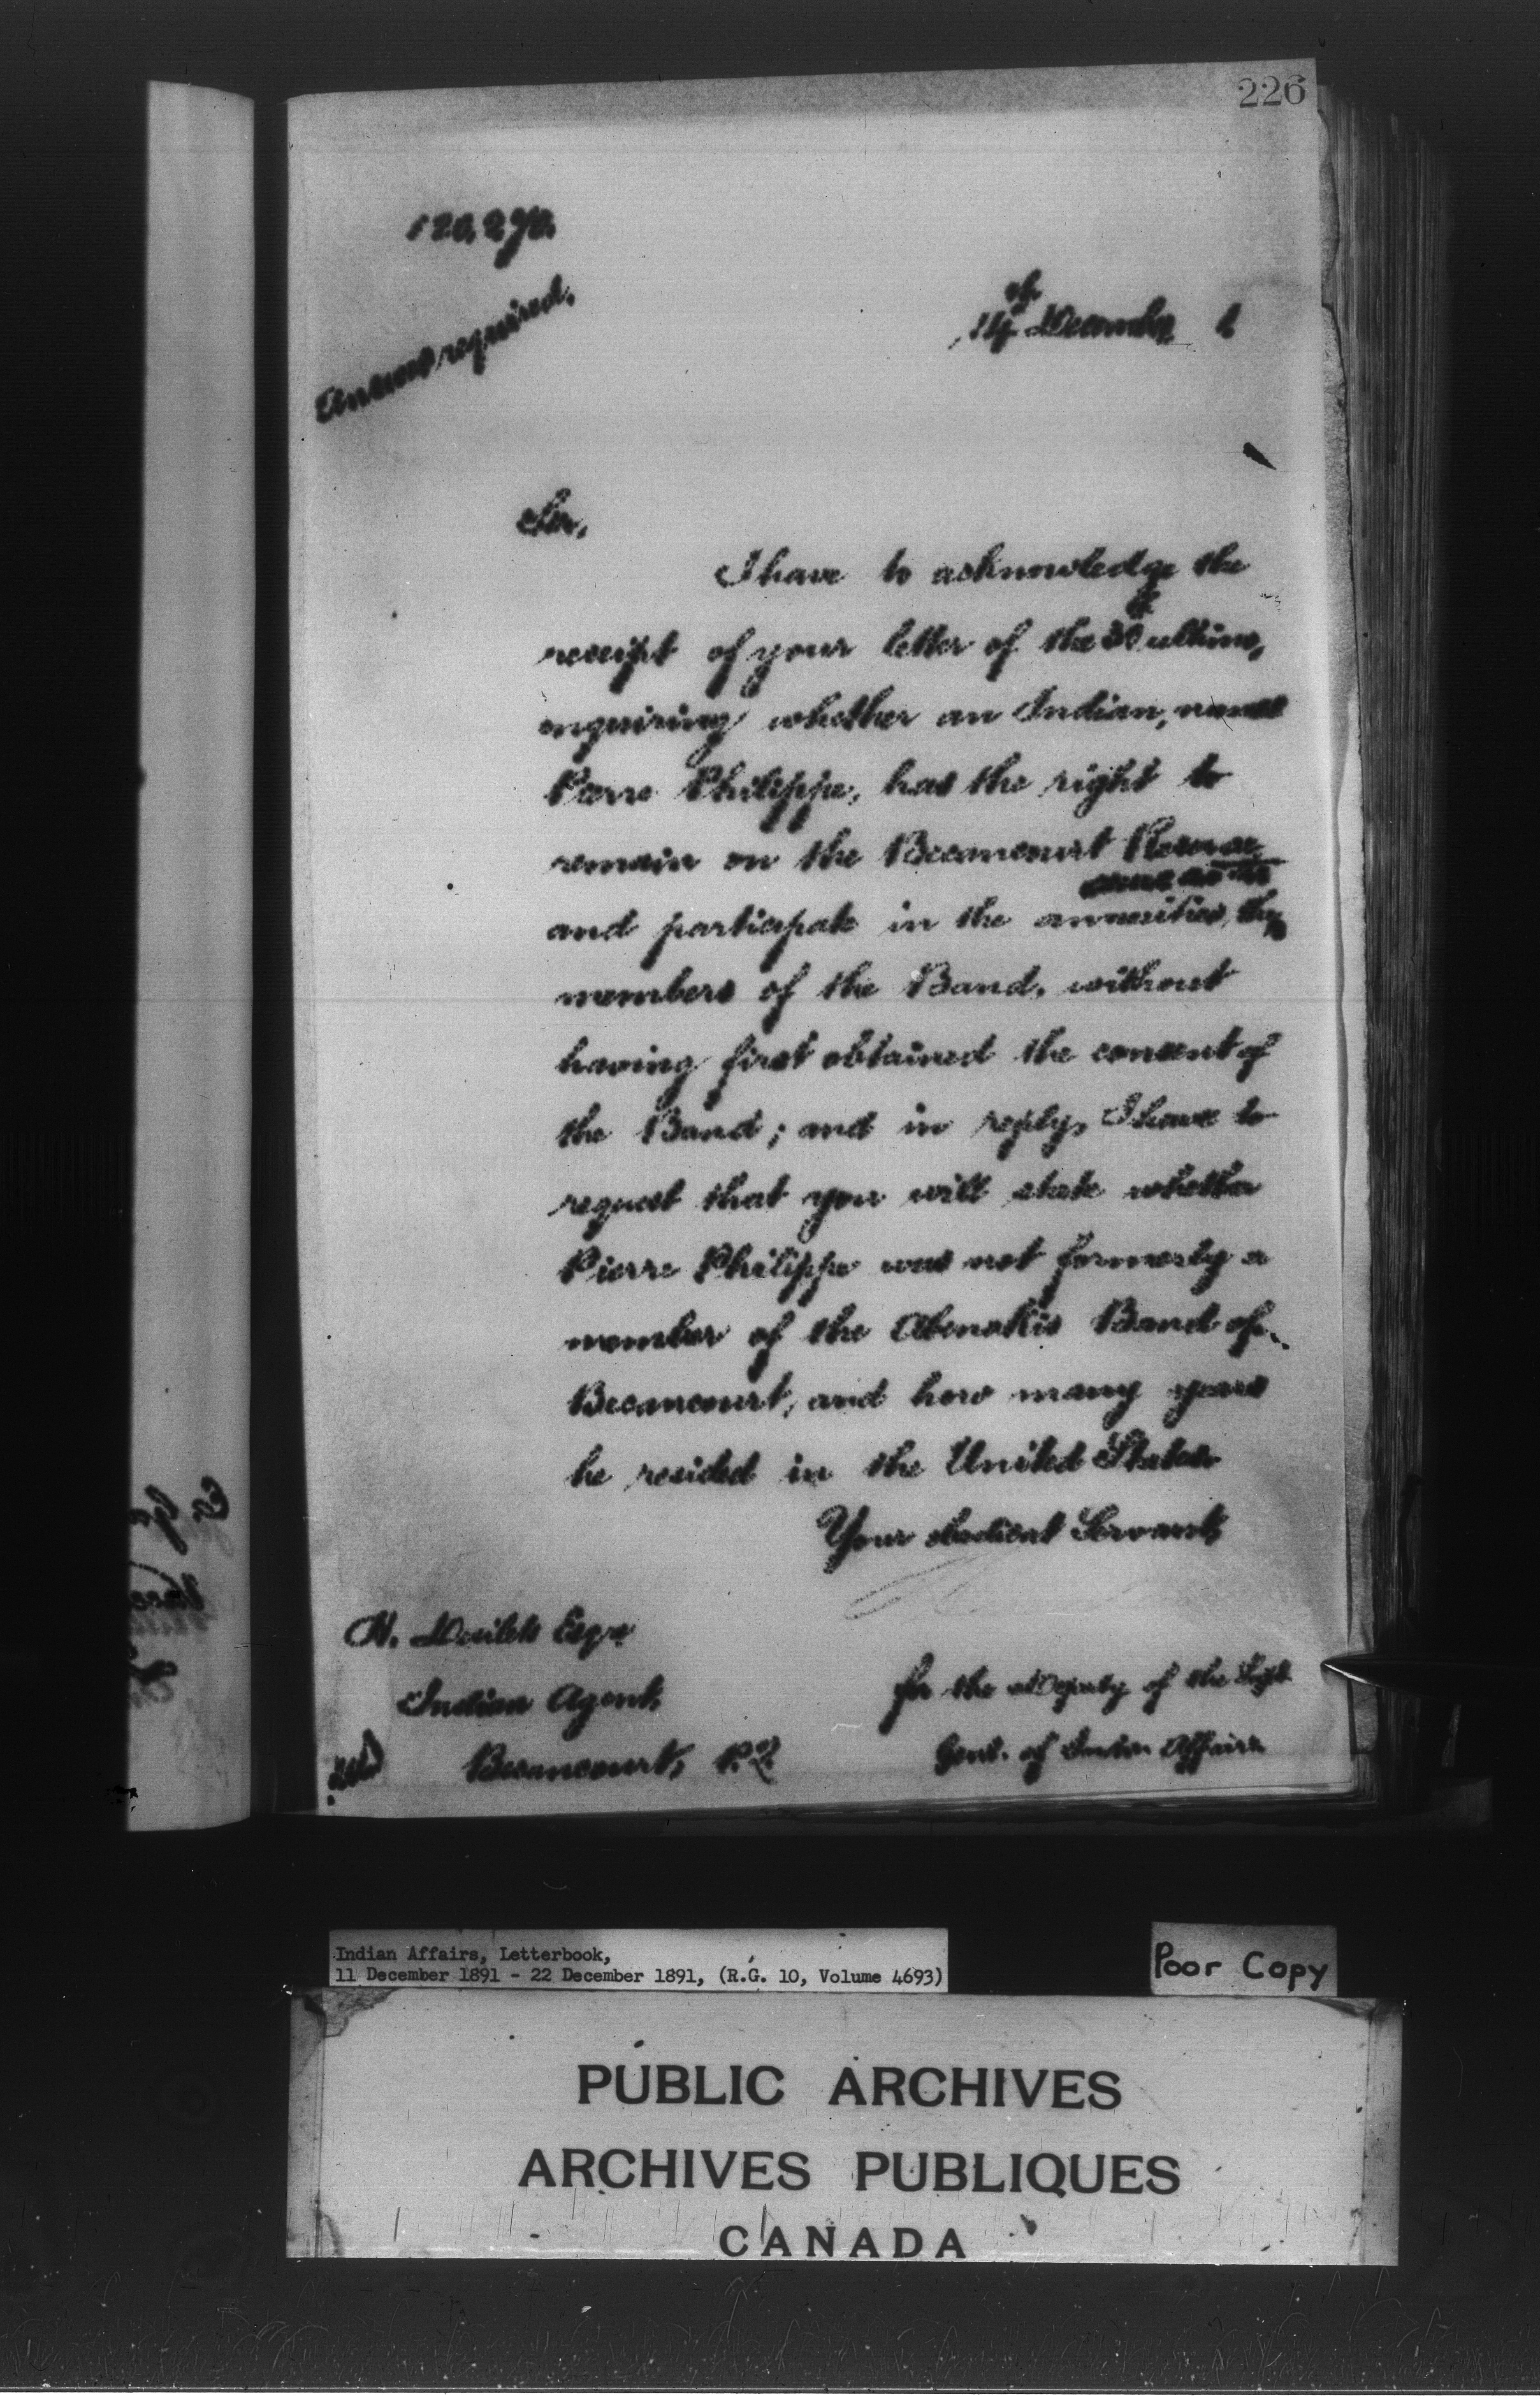 226
120,270.
Answer required.
14th December 1
Sir,
I have to acknowledge the
receipt of your letter of the 30th ultimo,
enquiring whether an Indian, named
Pierre Philippe, has the right to
remain on the Becancourt Reserve
and participate in the annuities, the
members of the Band, without
having first obtained the consent of
the Band; and in reply, I have to
request that you will state whether
Pierre Philippe was not formerly a
member of the Abenakis Band of
Becancourt, and how many years
he resided in the United States
Your obedient Servant,
H. Desilets Esqre
Indian Agent,
Becancourt, P.Q.
for the Deputy of the Supt.
Genl. of Indian Affairs.
Indian Affairs, Letterbook,
11 December 1891 - 22 December 1891, (R.G. 10, Volume 4693)
Poor Copy
PUBLIC ARCHIVES
ARCHIVES PUBLIQUES
CANADA